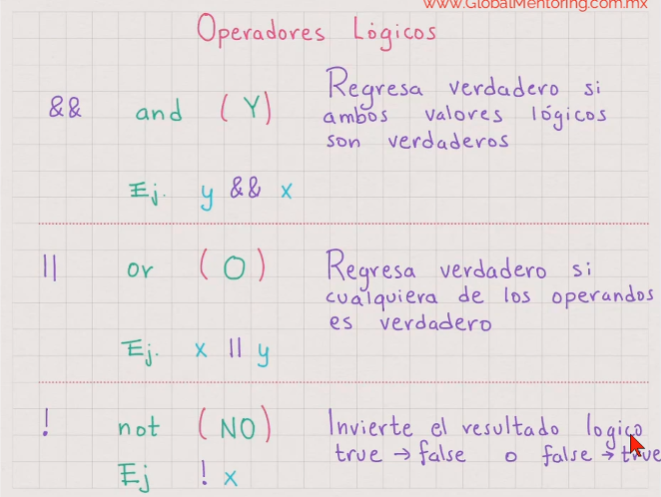 www.GlobalMentoring.com.mx
Operadores Lógicos
&& and (Y) Regresa verdadero si
ambos valores lógicos
son verdaderos
Ej. y && x
|| or (O) Regresa verdadero si
cualquiera de los operandos
es verdadero
Ej. x || y
! not (NO) Invierte el resultado logico
true → false o false → true
Ej ! x